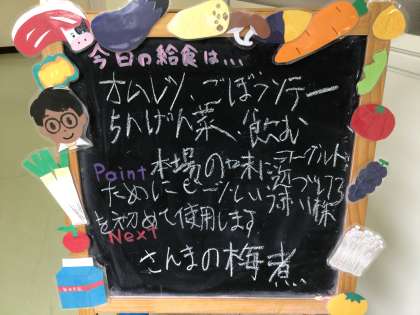 今日の給食は...
オムレツ、ごぼうソテー
ちんげん菜、飲む
ヨーグルト
Point 本場の味に近づける
ために
を初めて使用します
Next
さんまの梅煮